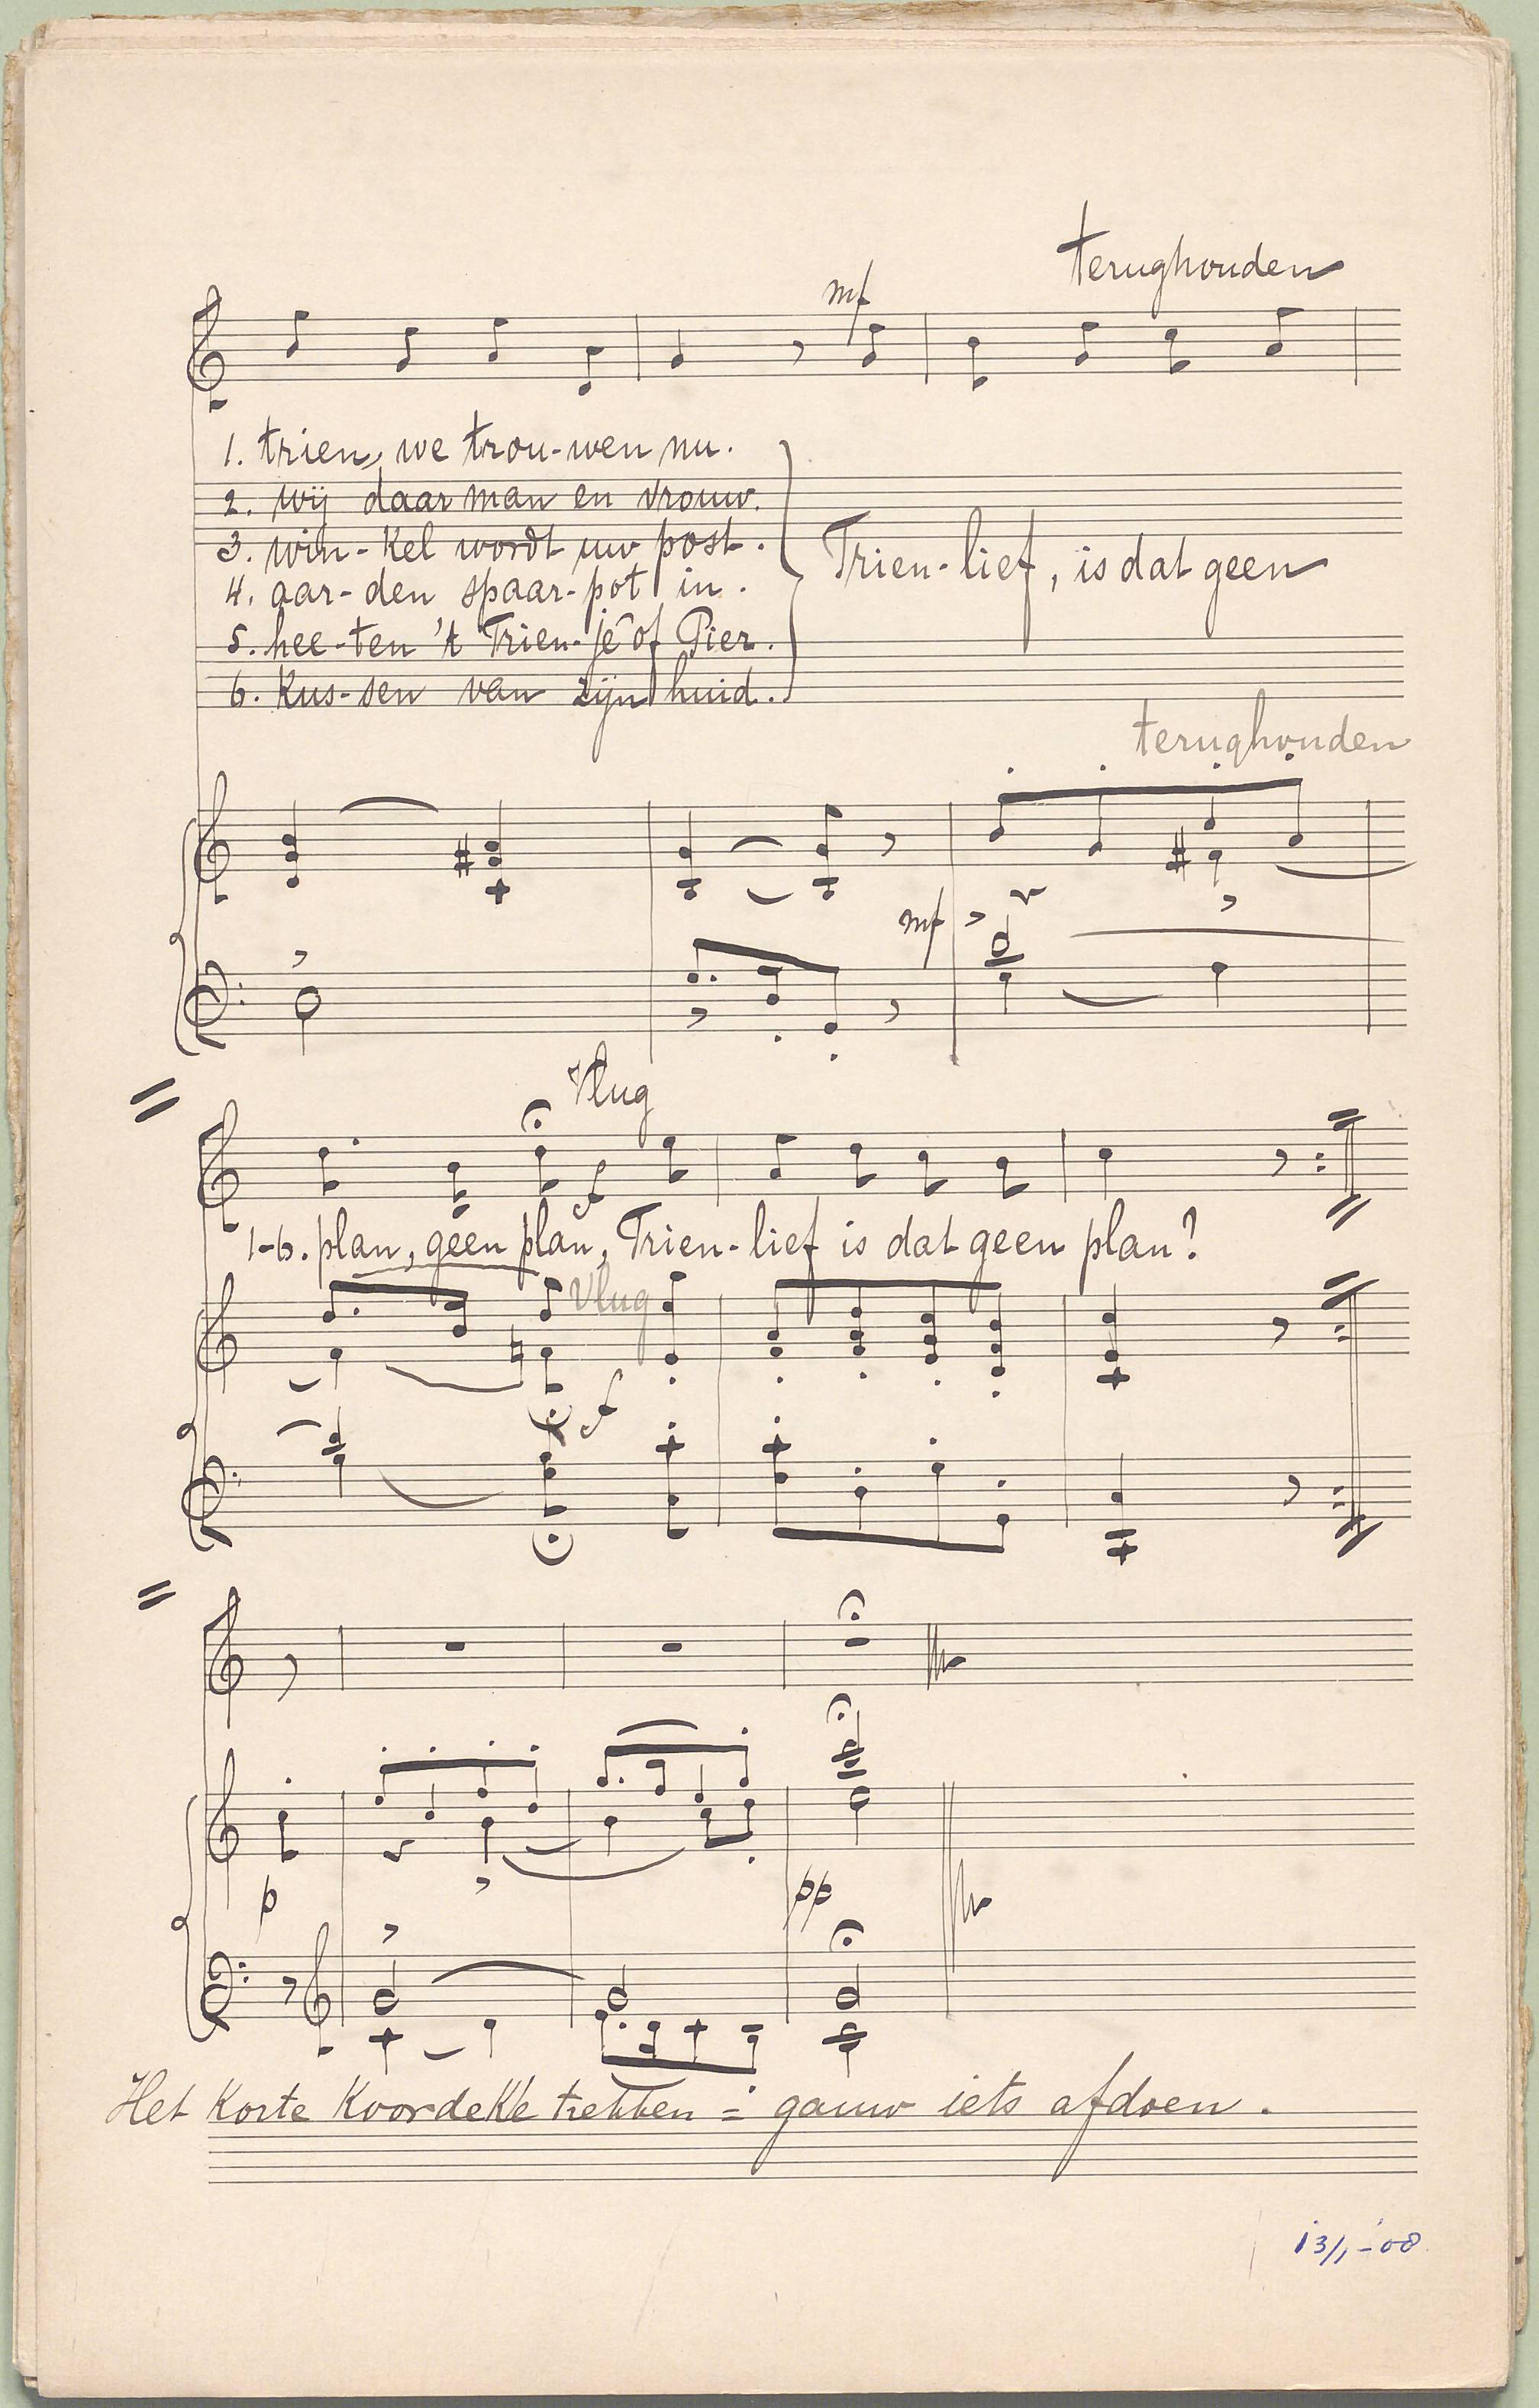 terughouden
mf
1. trien, we trou-wen nu.
2. wij daar man en vrouw.
3. win-kel wordt uw post.
4. aar-den spaar-pot in.
5. hee-ten 't Trien-je of Pier.
6. kus-sen van zijn huid.
Trien-lief, is dat geen
terughouden
mf
Vlug
f
1-6. plan, geen plan, Trien-lief is dat geen plan?
Vlug
f
p
pp
Het korte koordekke trekken = gauw iets afdoen.
13/1-'08